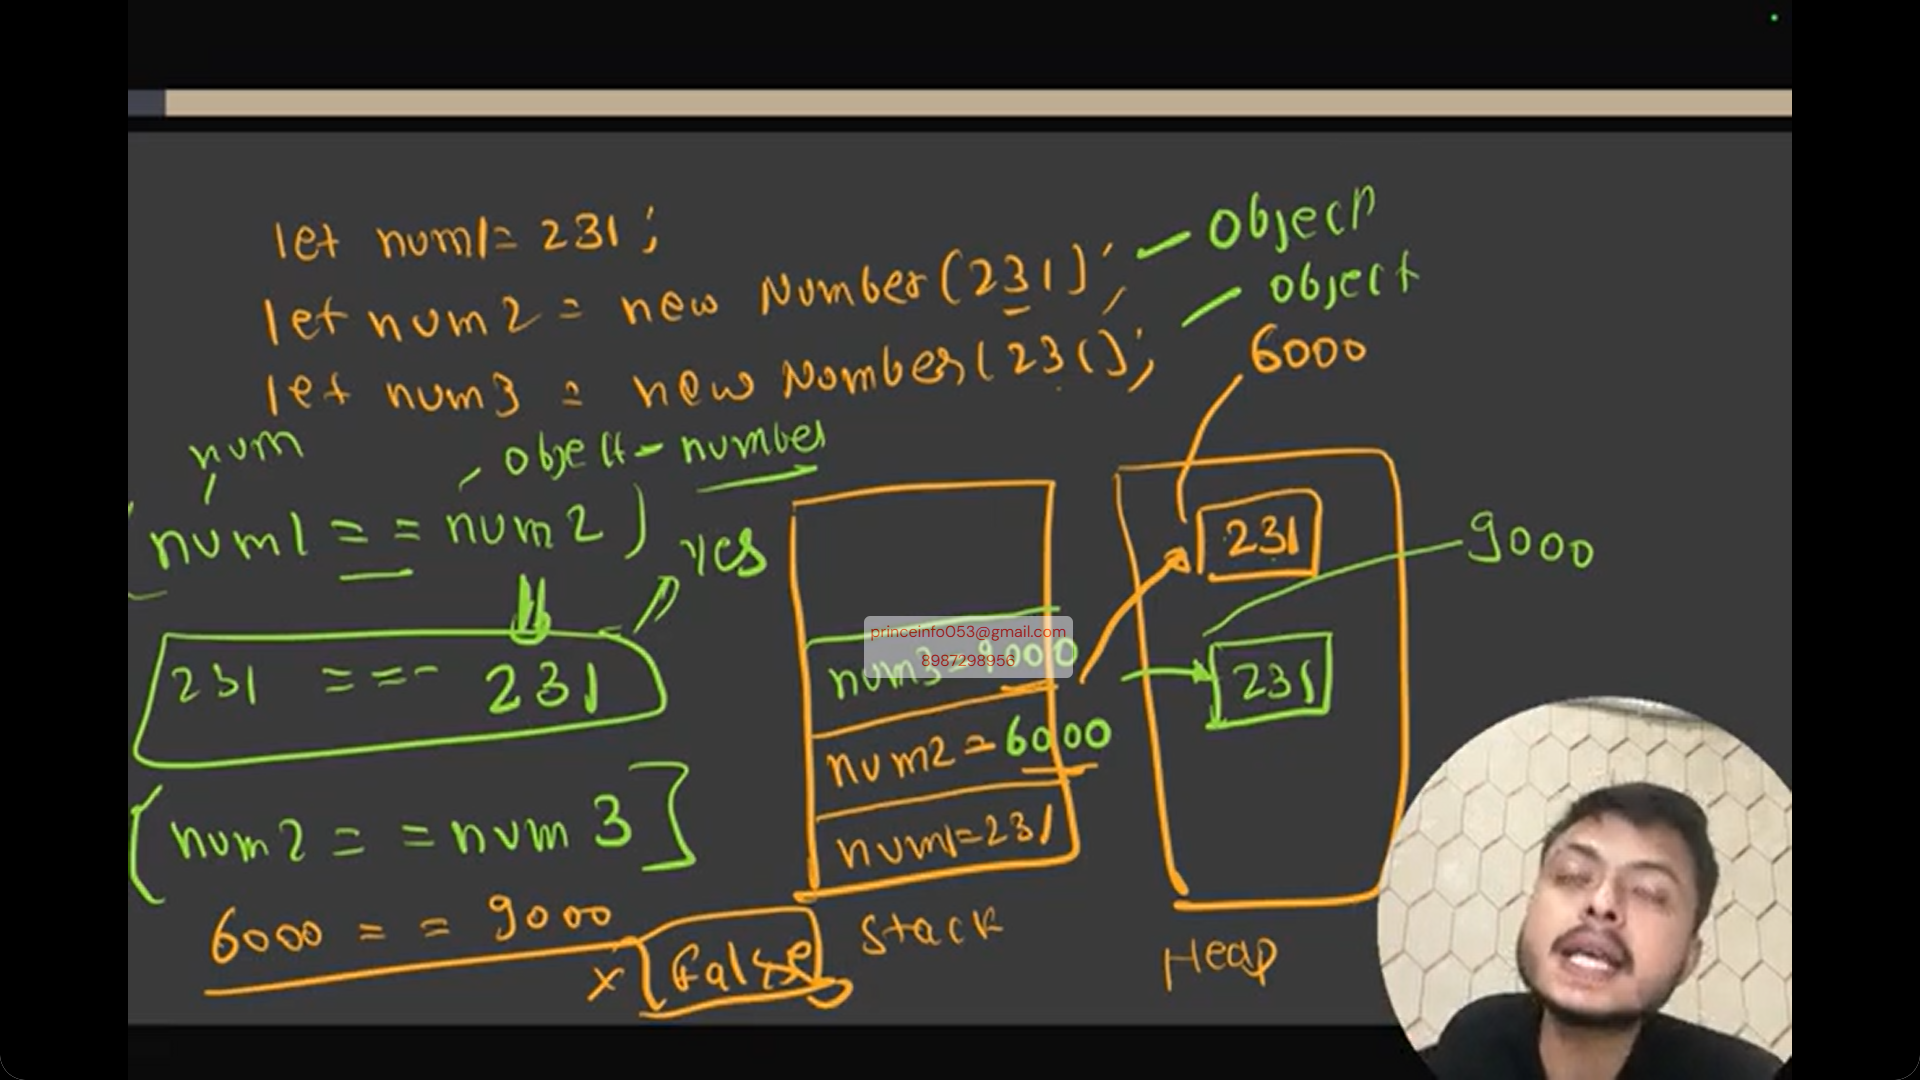 let num1= 231;
let num2 = new Number(231); - object
let num3 = new Number(231); - object
6000
num
object - number
(num1 == num2) yes
231 === 231
[num2 == num3]
6000 == 9000
x False
num3=9000
num2=6000
num1=231
Stack
231
9000
231
Heap
princeinfo053@gmail.com
8987298956